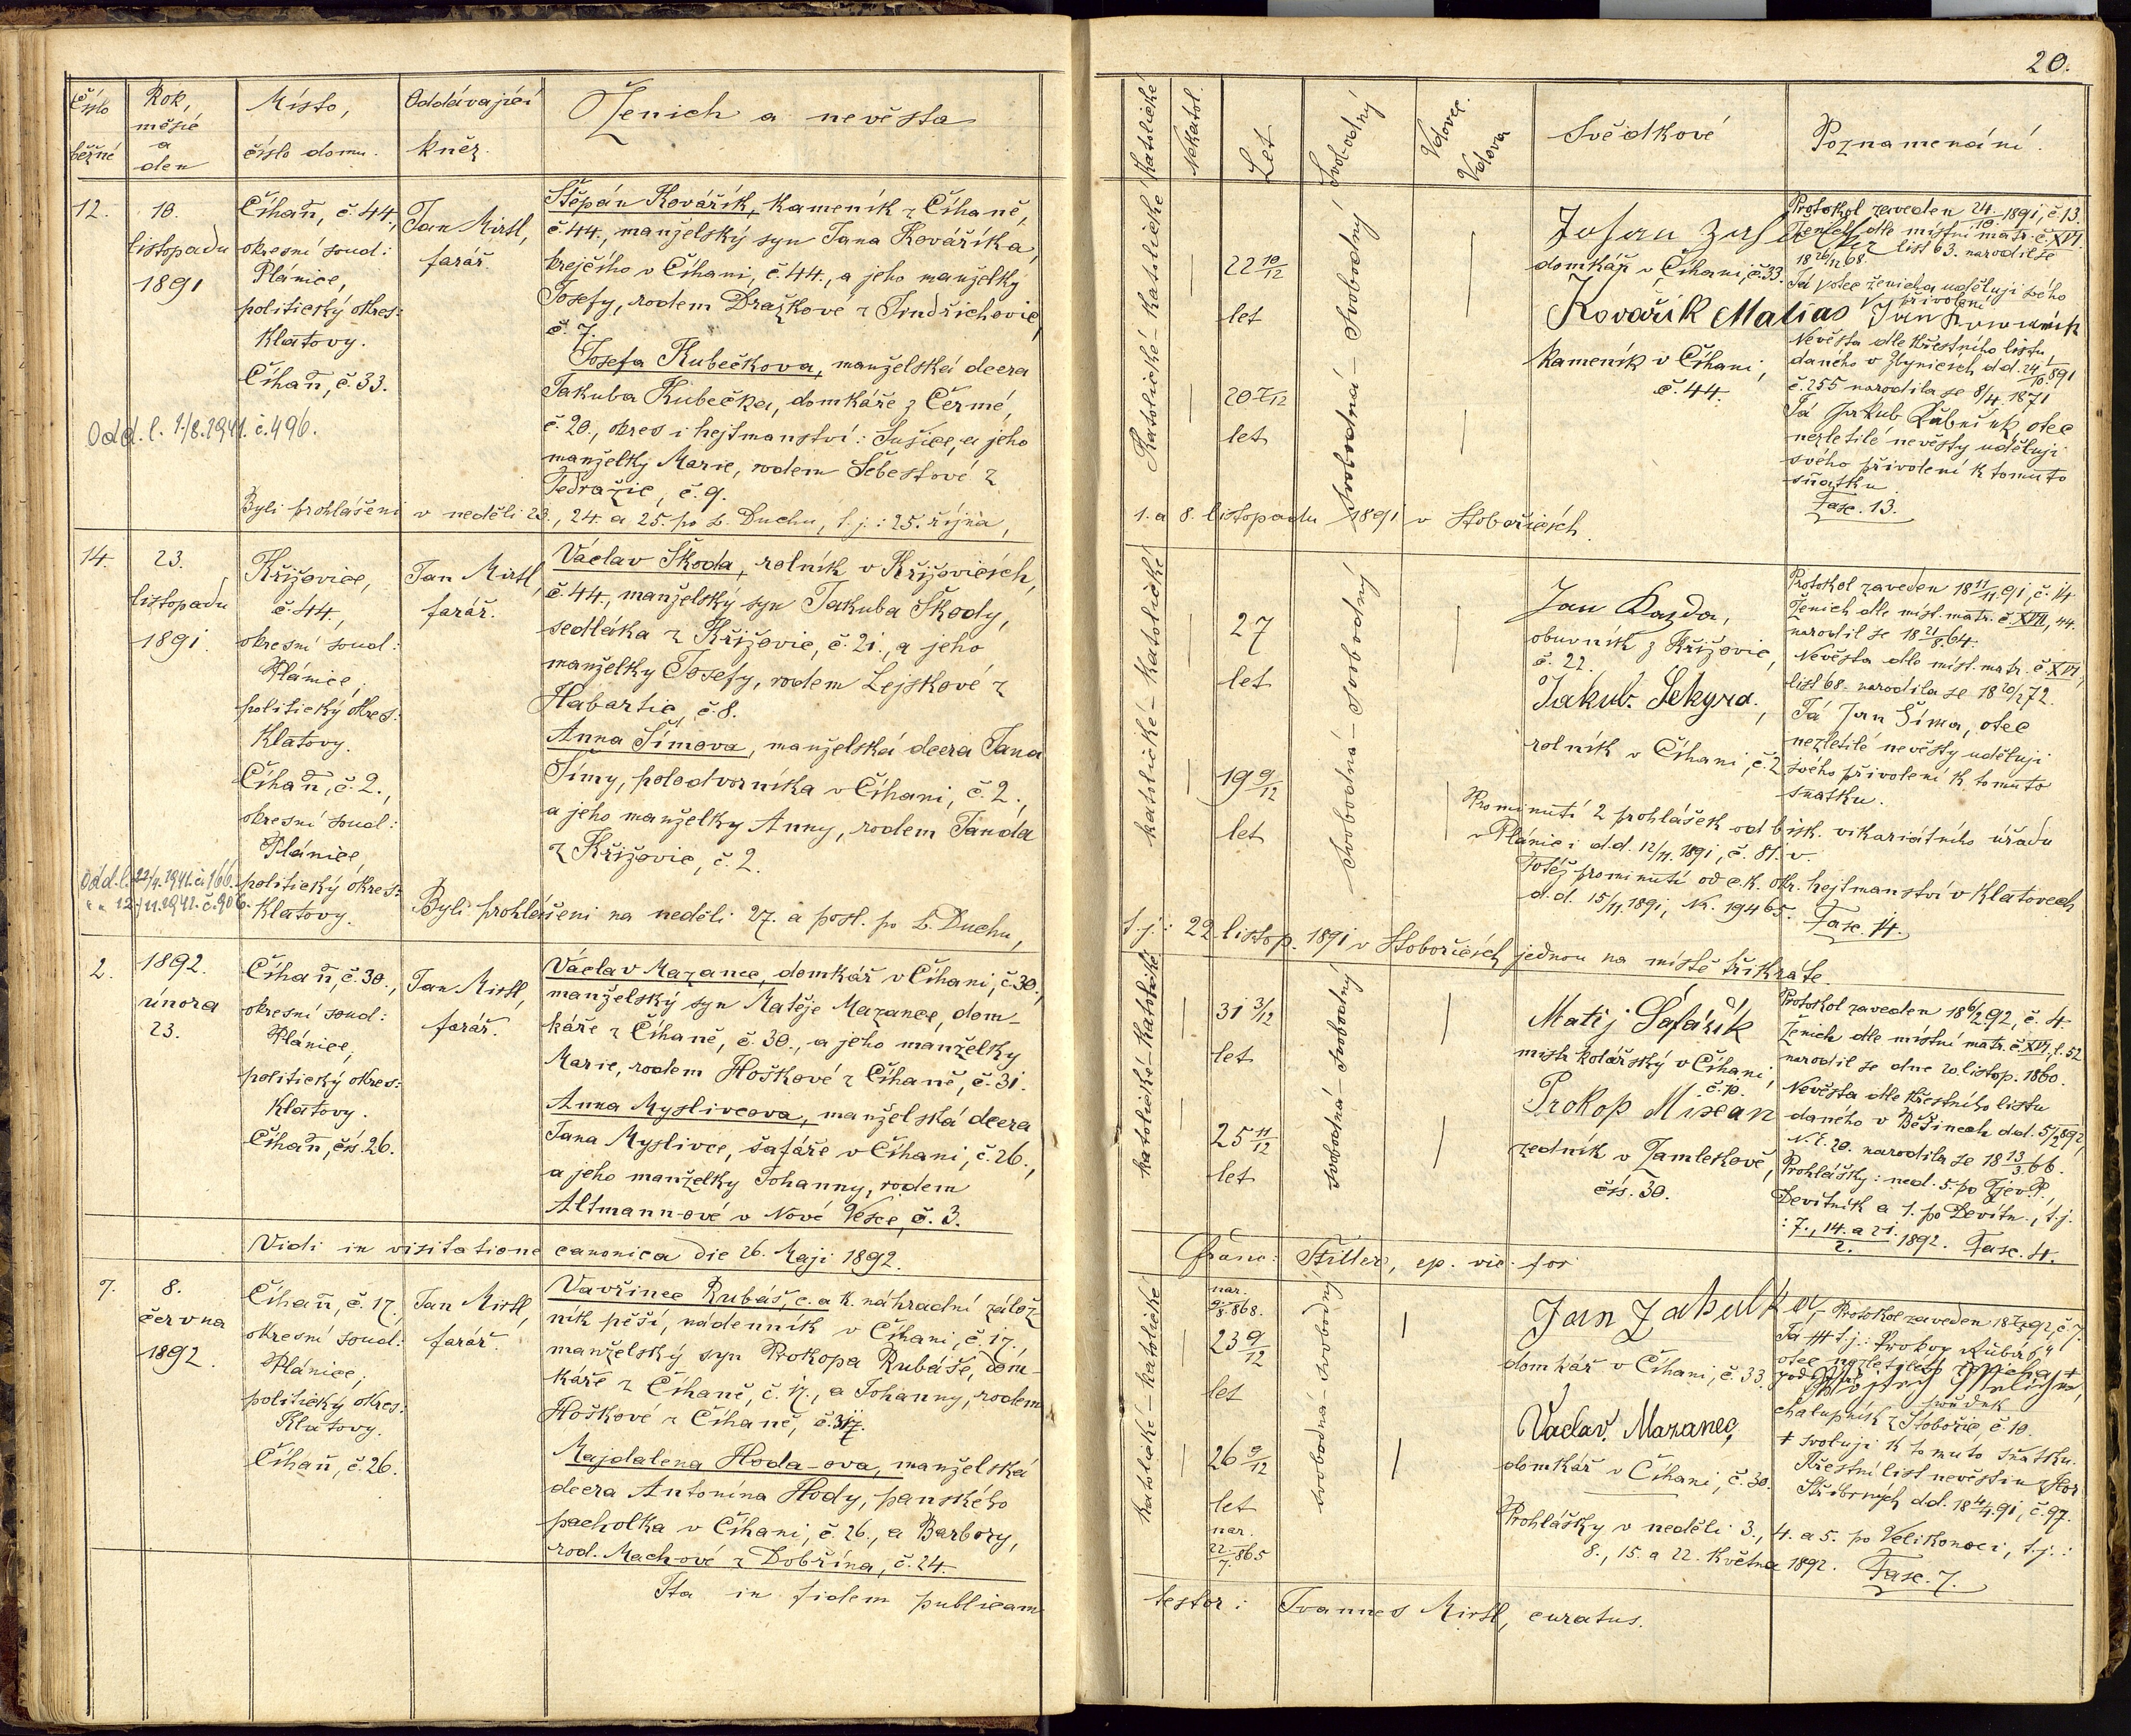 20.
Číslo běžné
Rok, měsíc a den
Místo, číslo domu.
Oddávající kněz.
Ženich a nevěsta
Katolické
Nekatol.
Let
Svobodný
Vdovec. Vdova
Svědkové
Poznamenání.
12.
10.
listopadu
1891
Číhaň, č. 44,
okresní soud:
Plánice,
politický okres:
Klatovy.
Číhaň, č. 33.
Odd. l. 1/8.1941. č. 496.
Jan Mirtl,
farář.
Štěpán Kovářík, kameník z Číhaně,
č. 44., manželský syn Jana Kováříka,
krejčího v Číhani, č. 44., a jeho manželky
Josefy, rodem Dražkové z Jindřichovic,
č. 7.
Josefa Kubečkova, manželská dcera
Jakuba Kubečka, domkáře z Čermé,
č. 20., okres i hejtmanství: Sušice, a jeho
manželky Marie, rodem Šebestové z
Tedražic, č. 9.
Byli prohlášeni v neděli 23., 24. a 25. po s. Duchu, t. j.: 25. října,
1. a 8. listopadu 1891 v Stobořicích.
Katolické – Katolické
22 10/12
let
20 7/12
let
Svobodná – Svobodný
domkář v Číhani, č. 33.
Kovařík Matias
kameník v Číhani,
č. 44.
Protokol zaveden 24/10 1891, č. 13.
Ženich dle místní matr. č. XVI.
list 63. narodil se
18 26/12 68.
Já otec ženicha uděluji svého
přivolení
Nevěsta dle křestního listu,
daného v Zbynicích d.d. 24/10. 891
č. 255 narodila se 8/4. 1871
Já Jakub Kubečník otec
nezletilé nevěsty uděluji
svého přivolení k tomuto
sňatku
Fasc. 13.
14.
23.
listopadu
1891.
Křižovice,
č. 44.,
okresní soud:
Plánice,
politický okres:
Klatovy.
Číhaň, č. 2.,
okresní soud:
Plánice,
politický okres:
Klatovy.
Odd. l. 22/4. 1941. č. 166.
" " 12./11. 1941. č. 906.
Jan Mirtl,
farář.
Václav Škoda, rolník v Křižovicích,
č. 44., manželský syn Jakuba Škody,
sedláka z Křižovic, č. 21., a jeho
manželky Josefy, rodem Lejskové z
Habartic, č. 8.
Anna Šímova, manželská dcera Jana
Šímy, polodvorníka v Číhani, č. 2.,
a jeho manželky Anny, rodem Janda
z Křižovic, č. 2.
Byli prohlášeni na neděli 27. a posl. po s. Duchu,
t. j.: 22. listop. 1891 v Stobořicích jednou na místě třikráte.
katolické – katolické
27
let
19 9/12
let
svobodná – svobodný
Jan Kazda,
obuvník z Křižovic,
č. 22.
Jakub Sekyra,
rolník v Číhani, č. 2
Protokol zaveden 18 11/11. 91, č. 14
Ženich dle míst. matr. č. XVI, 44.
narodil se 18 21/8. 64.
Nevěsta dle míst. matr. č. XVI,
list 68. narodila se 18 20/2 72.
Já Jan Šíma, otec
nezletilé nevěsty uděluji
svého přivolení k tomuto
sňatku.
Prominutí 2 prohlášek od bisk. vikariátního úřadu
v Plánici d.d. 12/11. 1891, č. 81. v.
Totéž prominutí od c. k. okr. hejtmanství v Klatovech
d.d. 15/11. 1891, Nr. 19465. Fasc. 14.
2.
1892.
února
23.
Číhaň, č. 30.,
okresní soud:
Plánice,
politický okres:
Klatovy.
Číhaň, čís. 26.
Jan Mirtl,
farář.
Václav Mazanec, domkář v Číhani, č. 30.,
manželský syn Matěje Mazance, dom-
káře z Číhaně, č. 30., a jeho manželky
Marie, rodem Hoškové z Číhaně, č. 31.
Anna Myslivcova, manželská dcera
Jana Myslivce, šafáře v Číhani, č. 26.,
a jeho manželky Johanny, rodem
Altmann-ové v Nové Vesce, č. 3.
katolické – katolické
31 3/12
let
25 11/12
let
svobodná – svobodný
Matěj Šafařík
mistr kolářský v Číhani,
č. 10.
Prokop Mixan
zedník v Zamlekově,
čís. 30.
Protokol zaveden 18 6/2 92, č. 4
Ženich dle místní matr. č. XVI, f. 52
narodil se dne 20. listop. 1860.
Nevěsta dle křestního listu
daného v Běšinech d.d. 5/2 892,
N. E. 20. narodila se 18 13/3. 66.
Prohlášky: ned. 5. po Zjev. P.,
Devítník a 1. po Devítn., t. j.
: 7., 14. a 21./2. 1892. Fasc. 4.
Vidi in visitatione canonica die 26. Maji 1892.
Franc: Stiller, ep. vic. for
7.
8.
června
1892.
Číhaň, č. 17.,
okresní soud:
Plánice,
politický okres:
Klatovy.
Číhaň, č. 26.
Jan Mirtl,
farář.
Vavřinec Rubáš, c. a k. náhradní zálož
ník pěší, nádenník v Číhani, č. 17.,
manželský syn Prokopa Rubáše, dom-
káře z Číhaně, č. 17., a Johanny, rodem
Hoškové z Číhaně, č. 17.
Majdalena Hoda-ova, manželská
dcera Antonína Hody, panského
pacholka v Číhani, č. 26., a Barbory,
rod. Mach-ové z Dobřína, č. 24.
katolické – katolické
nar.
9./8. 868.
23 9/12
let
26 9/12
let
nar.
22./7. 865
svobodná – svobodný
Jan Zahalka,
domkář v Číhani, č. 33.
Vaclav Mazanec,
domkář v Číhani, č. 30.
Já +++ t. j.: Prokop Rubáš
otec nezletilého ženicha +
svědek
chalupník z Stobořic, č. 10.
+ svoluji k tomuto sňatku.
Křestní list nevěstin z Hor
Stříbrných d.d. 18 4/4. 91, č. 97.
Prohlášky v neděli 3., 4. a 5. po Velikonoci, t. j.:
8., 15. a 22. května 1892. Fasc. 7.
Ita in fidem publicam
testor: Joannes Mirtl, curatus.